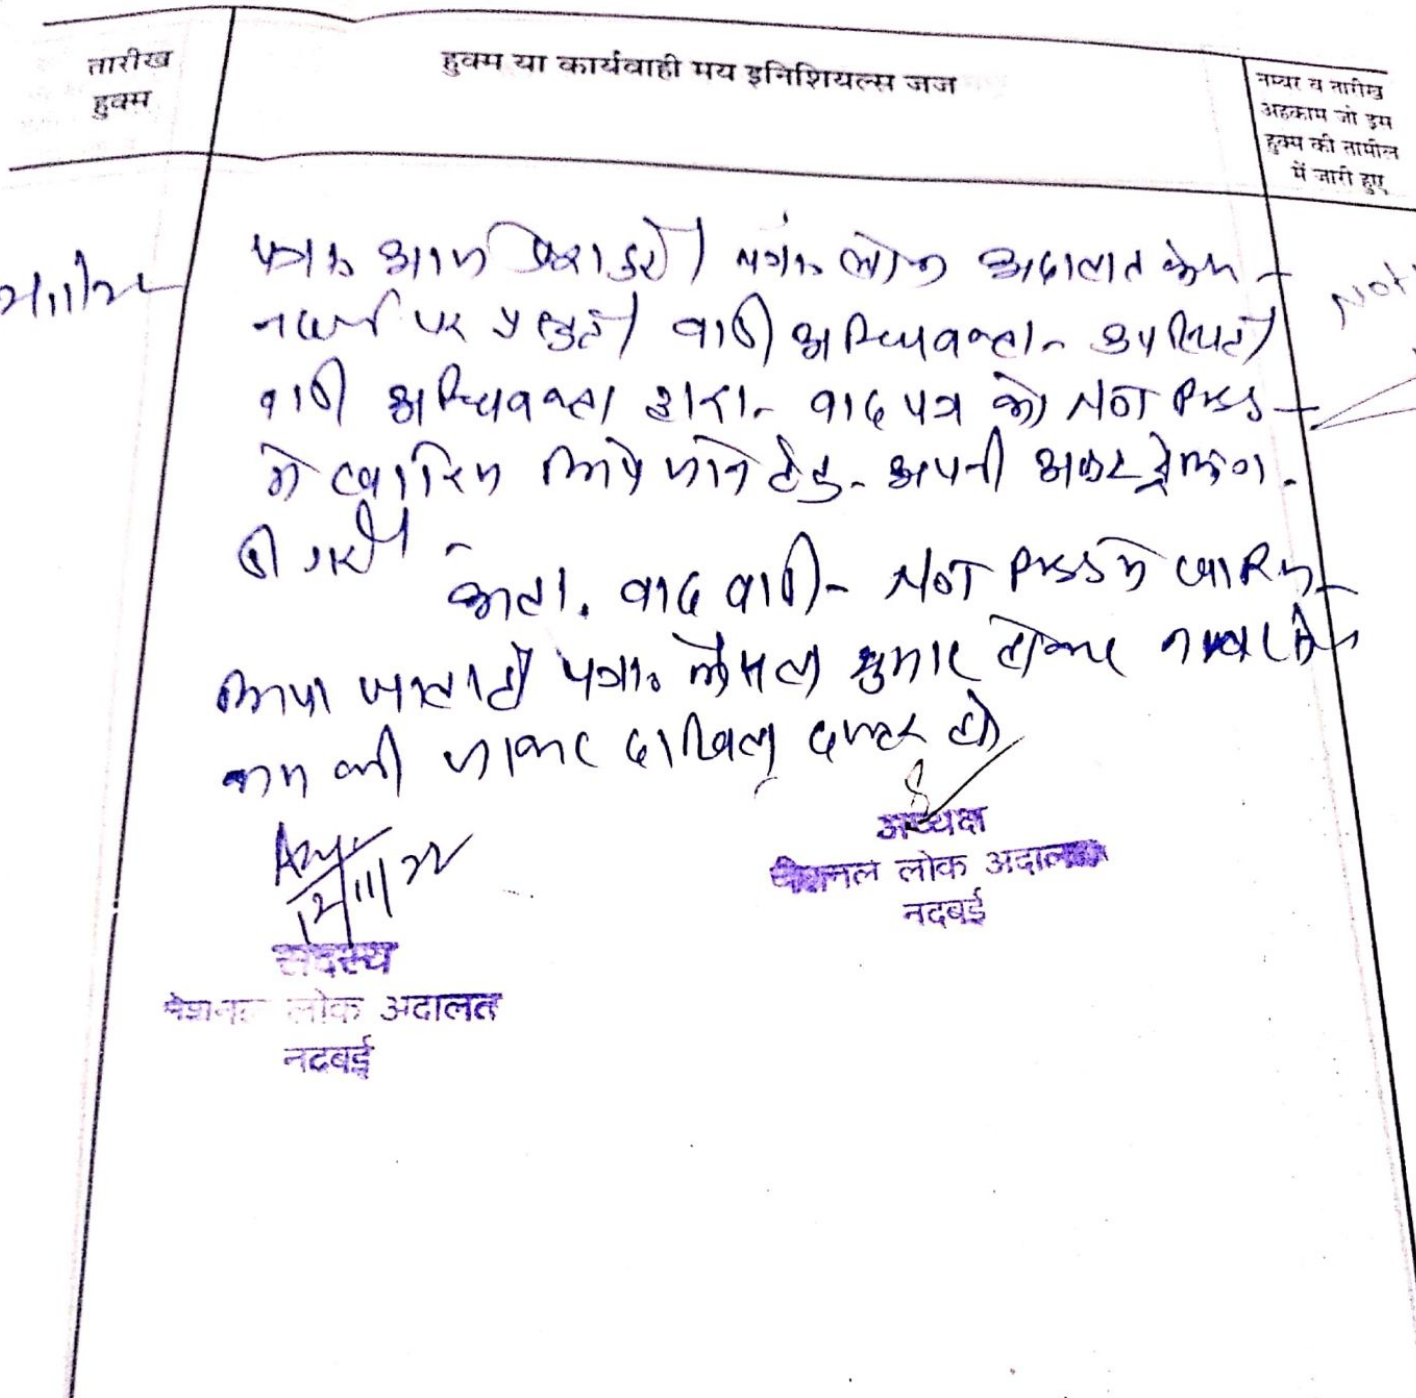 तारीख
हुक्म
हुक्म या कार्यवाही मय इनिशियल्स जज
नम्बर व तारीख
अहकाम जो इस
हुक्म की तामील
में जारी हुए
पत्रा० आज पेश हुयी। पत्रा० लोक अदालत केम्प
नदबई पर प्रस्तुत। वादी अधिवक्ता उपस्थित।
वादी अधिवक्ता द्वारा वाद पत्र को NOT PRESS
में खारिज किये जाने हेतु अपनी
दी गयी।
अतः वाद वादी NOT PRESS में खारिज
किया जाता है। पत्रा० फैसल शुमार होकर नम्बर से
कम की जाकर दाखिल दफ्तर हो।
Not
12/11/22
अध्यक्ष
नेशनल लोक अदालत
नदबई
सदस्य
नेशनल लोक अदालत
नदबई